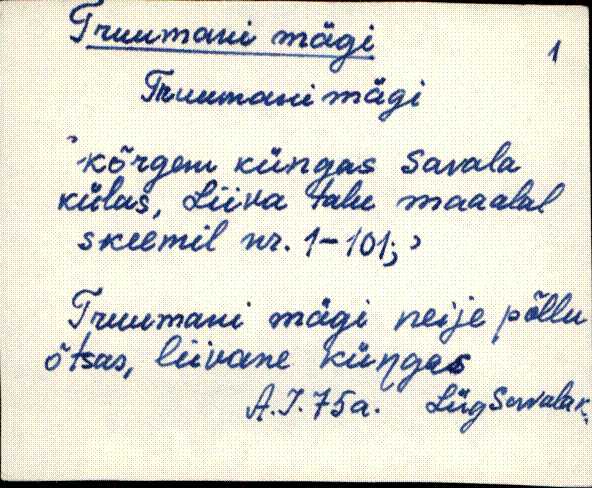 Truumani mägi
1
Truumani mägi
"kõrgem küngas Savala
külas, Liiva talu maaalal
skeemil nr. 1-101;"
Truumani mägi neije põllu
õtsas, liivane küngas
A.J. 75a. Lüg Savala k.